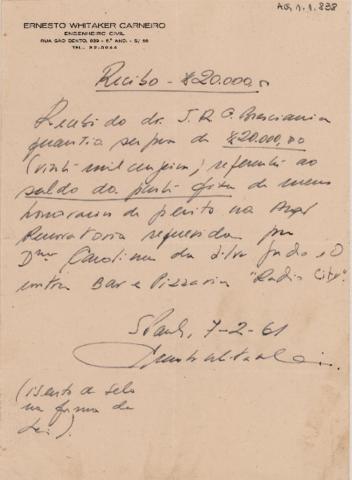 AG.1.1.838
ERNESTO WHITAKER CARNEIRO
ENGENHEIRO CIVIL
RUA SÃO BENTO, 6.º AND.
TEL.
Recibo - $20.000,00
Recebi do dr. J. R. a
quantia supra de $20.000,00
(vinte mil cruzeiros) referente ao
saldo da de meus
honorarios de perito na
Renovatoria requerida por
Dna Carolina da Silva e O
contra Bar e Pizzaria "Radio City".
S. Paulo, 7-2-61
(isento de selo
na forma da
Lei).